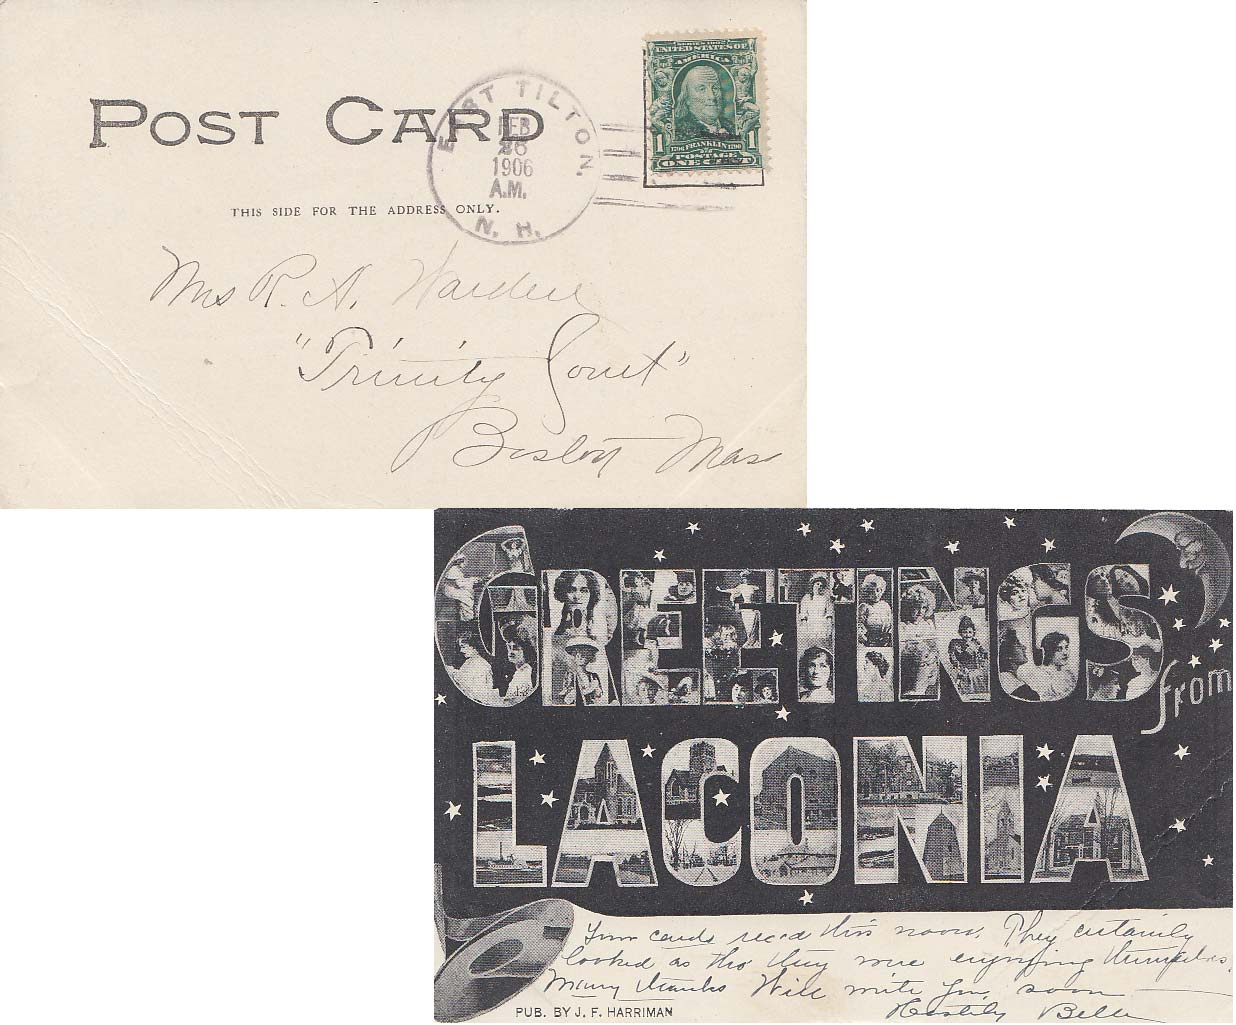 POST CARD
THIS SIDE FOR THE ADDRESS ONLY.
EAST TILTON,
FEB
26
1906
A.M.
N. H.
SERIES 1902
UNITED STATES OF
AMERICA
1 1
1706 FRANKLIN 1790
POSTAGE
ONE CENT
Mrs R. A. Warden
"Trinity Court"
Boston Mass
GREETINGS
from
LACONIA
Your cards recd this noon. They certainly
looked as tho they were enjoying themselves,
Many thanks Will write you soon
Hastily Belle
PUB. BY J. F. HARRIMAN